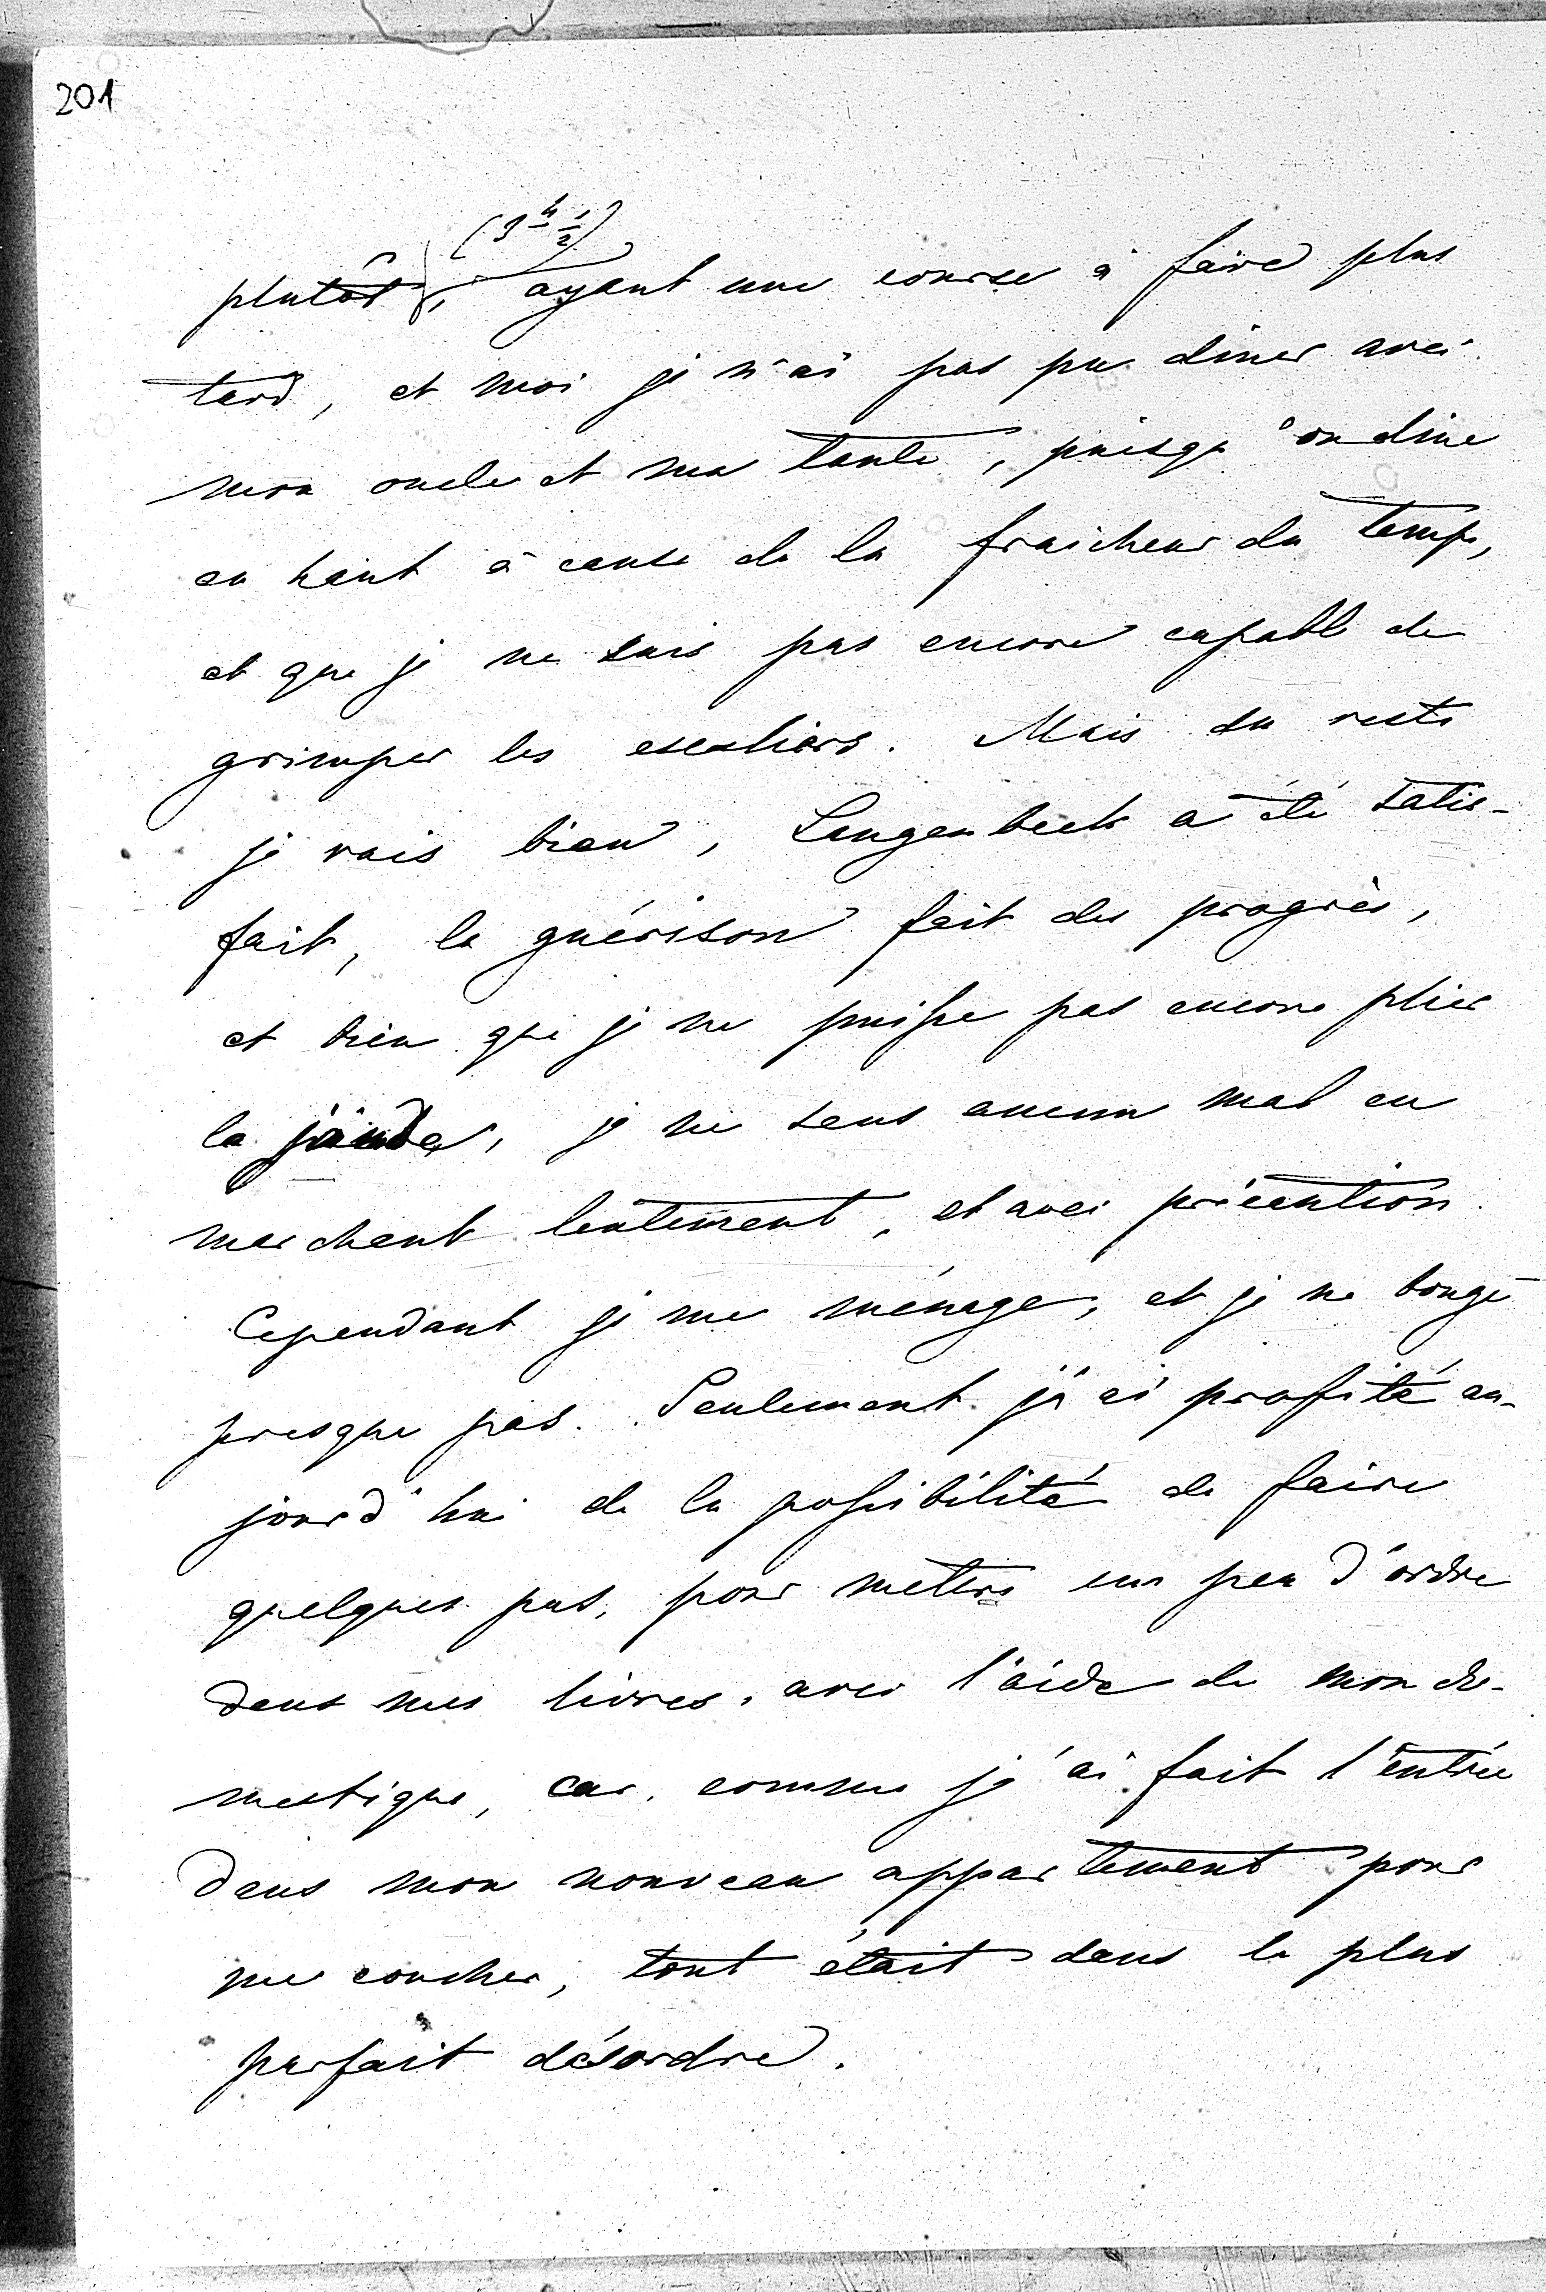 201
(3 h ½)
plutôt, ayant une course à faire plus
tard, et moi je n'ai pas pu diner avec
mon oncle et ma tante, puisqu'on dine
en haut à cause de la fraicheur du temps,
et que je ne suis pas encore capable de
grimper les escaliers. Mais du reste
je vais bien, Langenbeck a été satis-
fait, la guérison fait des progrès,
et bien que je ne puisse pas encore plier
la jambe, je ne sens aucun mal en
marchant lentement, et avec précaution.
Cependant je me ménage, et je ne bouge
presque pas. Seulement j'ai profité au-
jourd'hui de la possibilité de faire
quelques pas, pour mettre un peu d'ordre
dans mes livres, avec l'aide de mon do-
mestique, car, comme j'ai fait l'entrée
dans mon nouveau appartement pour
me coucher, tout était dans le plus
parfait désordre.